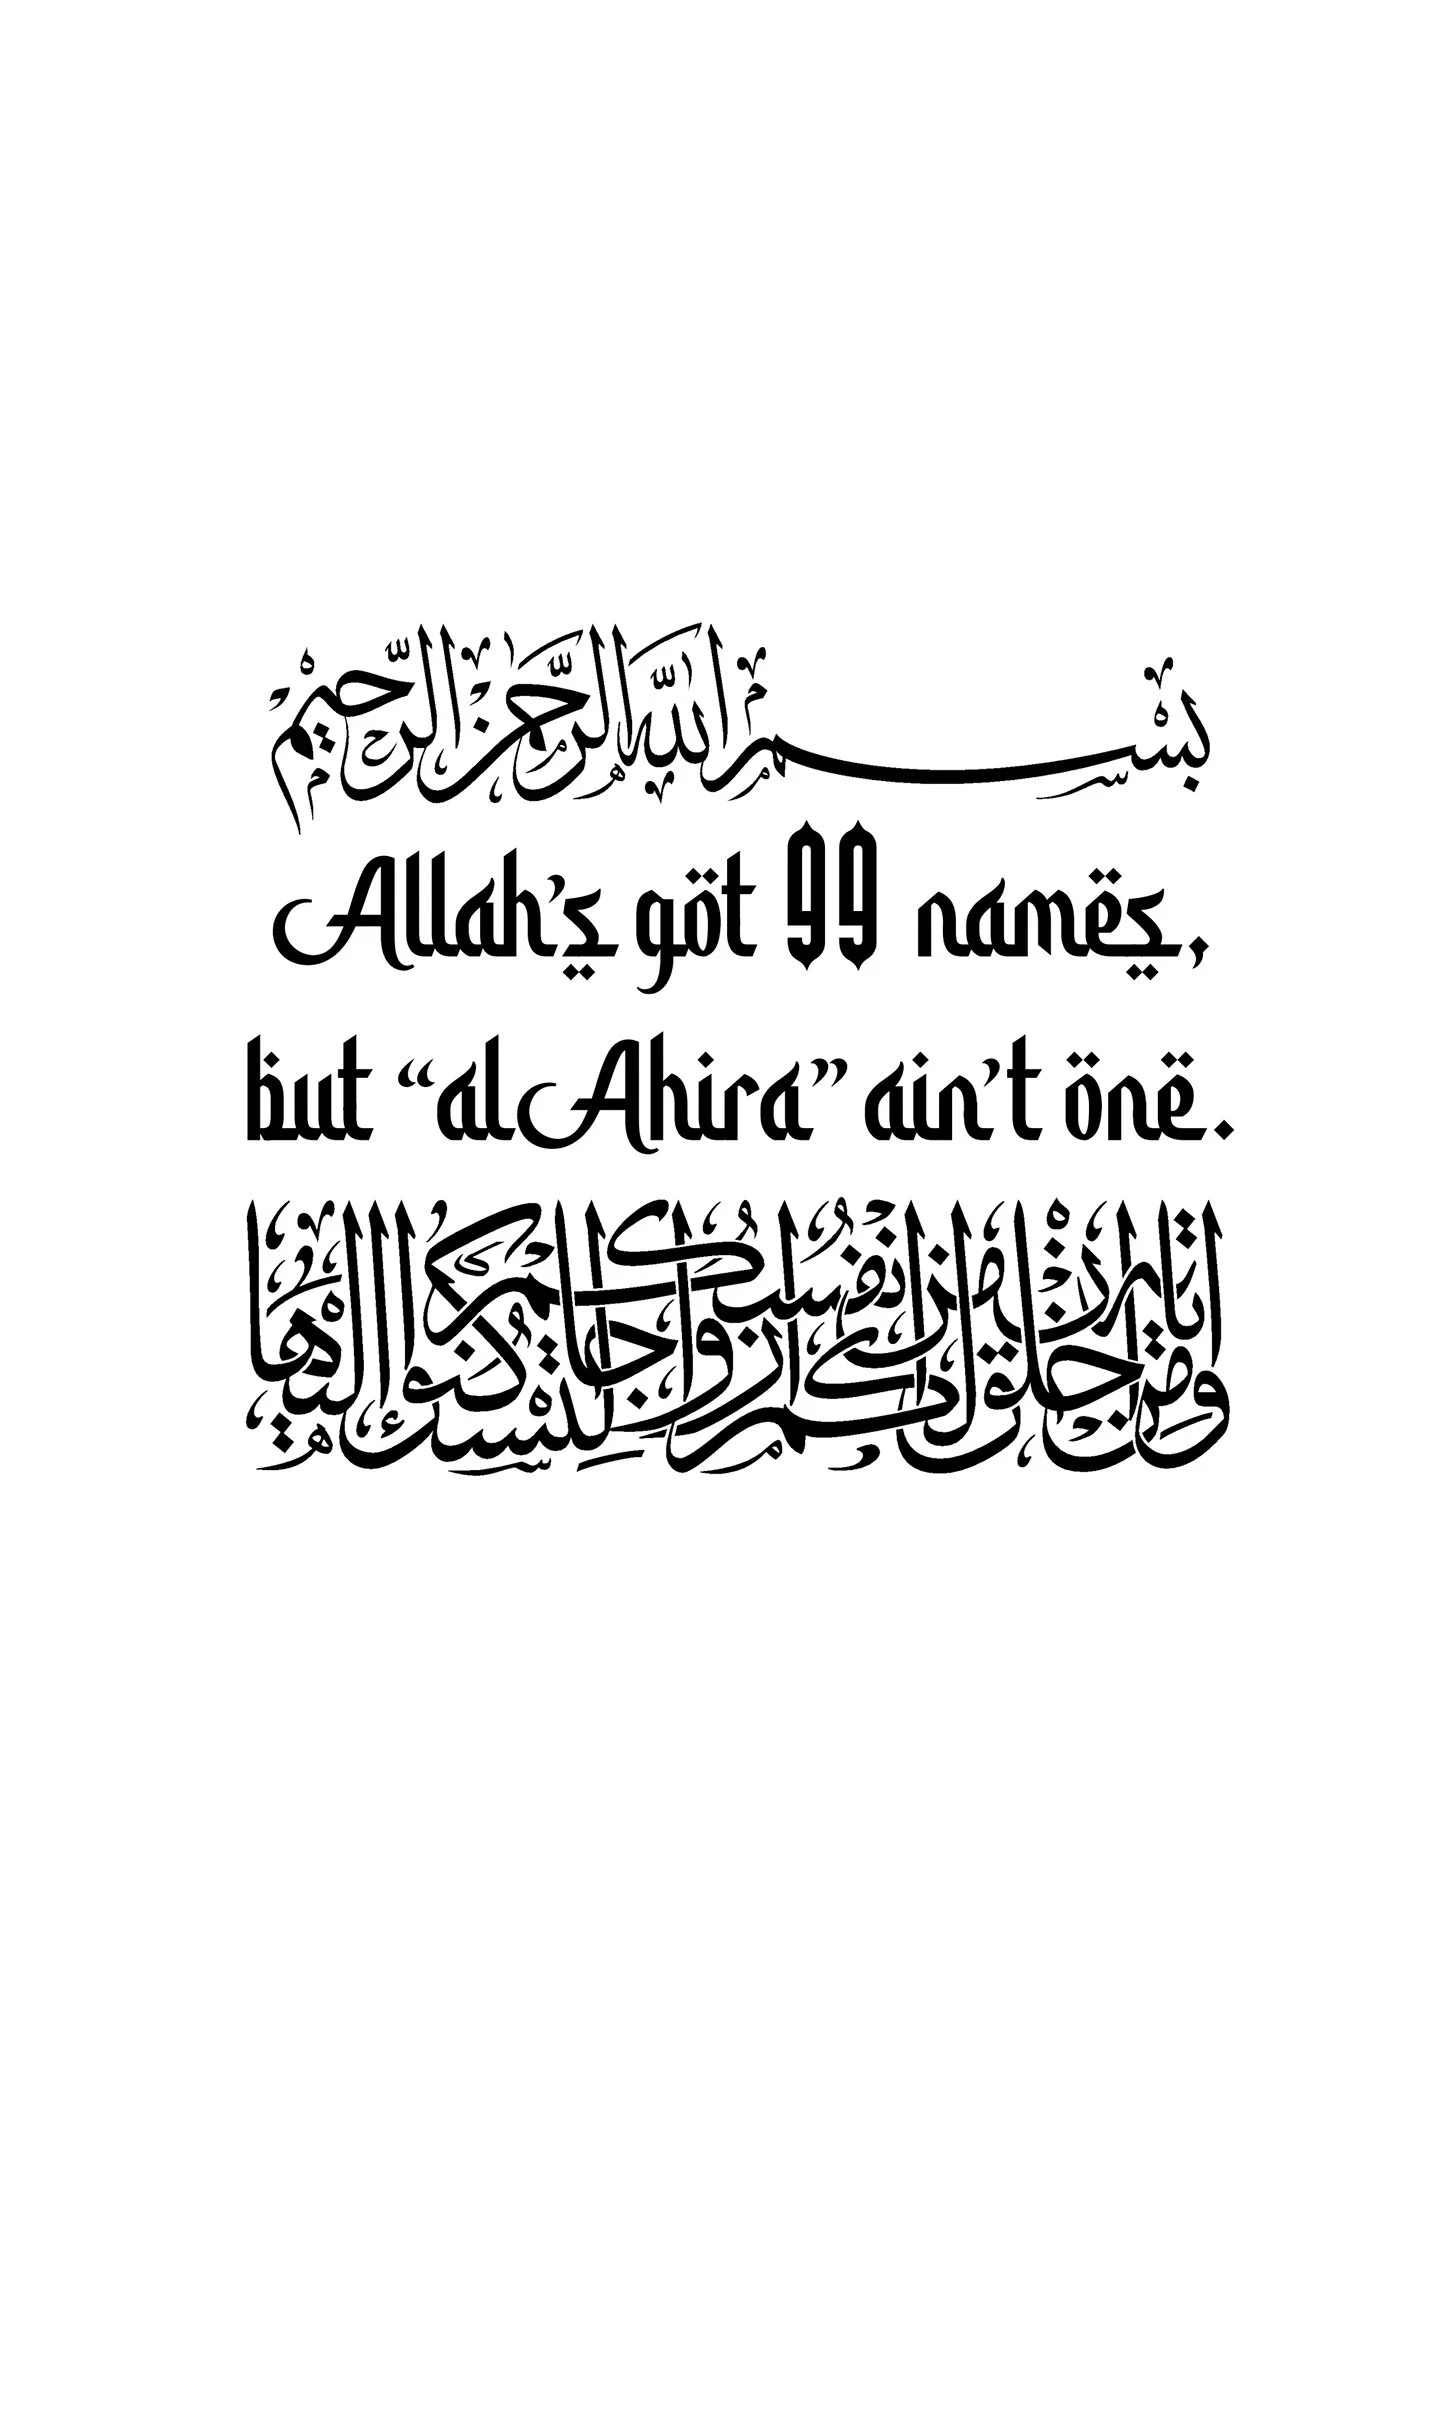 بِسْمِ اللَّهِ الرَّحْمَٰنِ الرَّحِيمِ
Allah's göt 99 namës,
but “alAhira” ain't önë.
وَمِنْ آيَاتِهِ أَنْ خَلَقَ لَكُمْ مِنْ أَنْفُسِكُمْ أَزْوَاجًا لِتَسْكُنُوا إِلَيْهَا